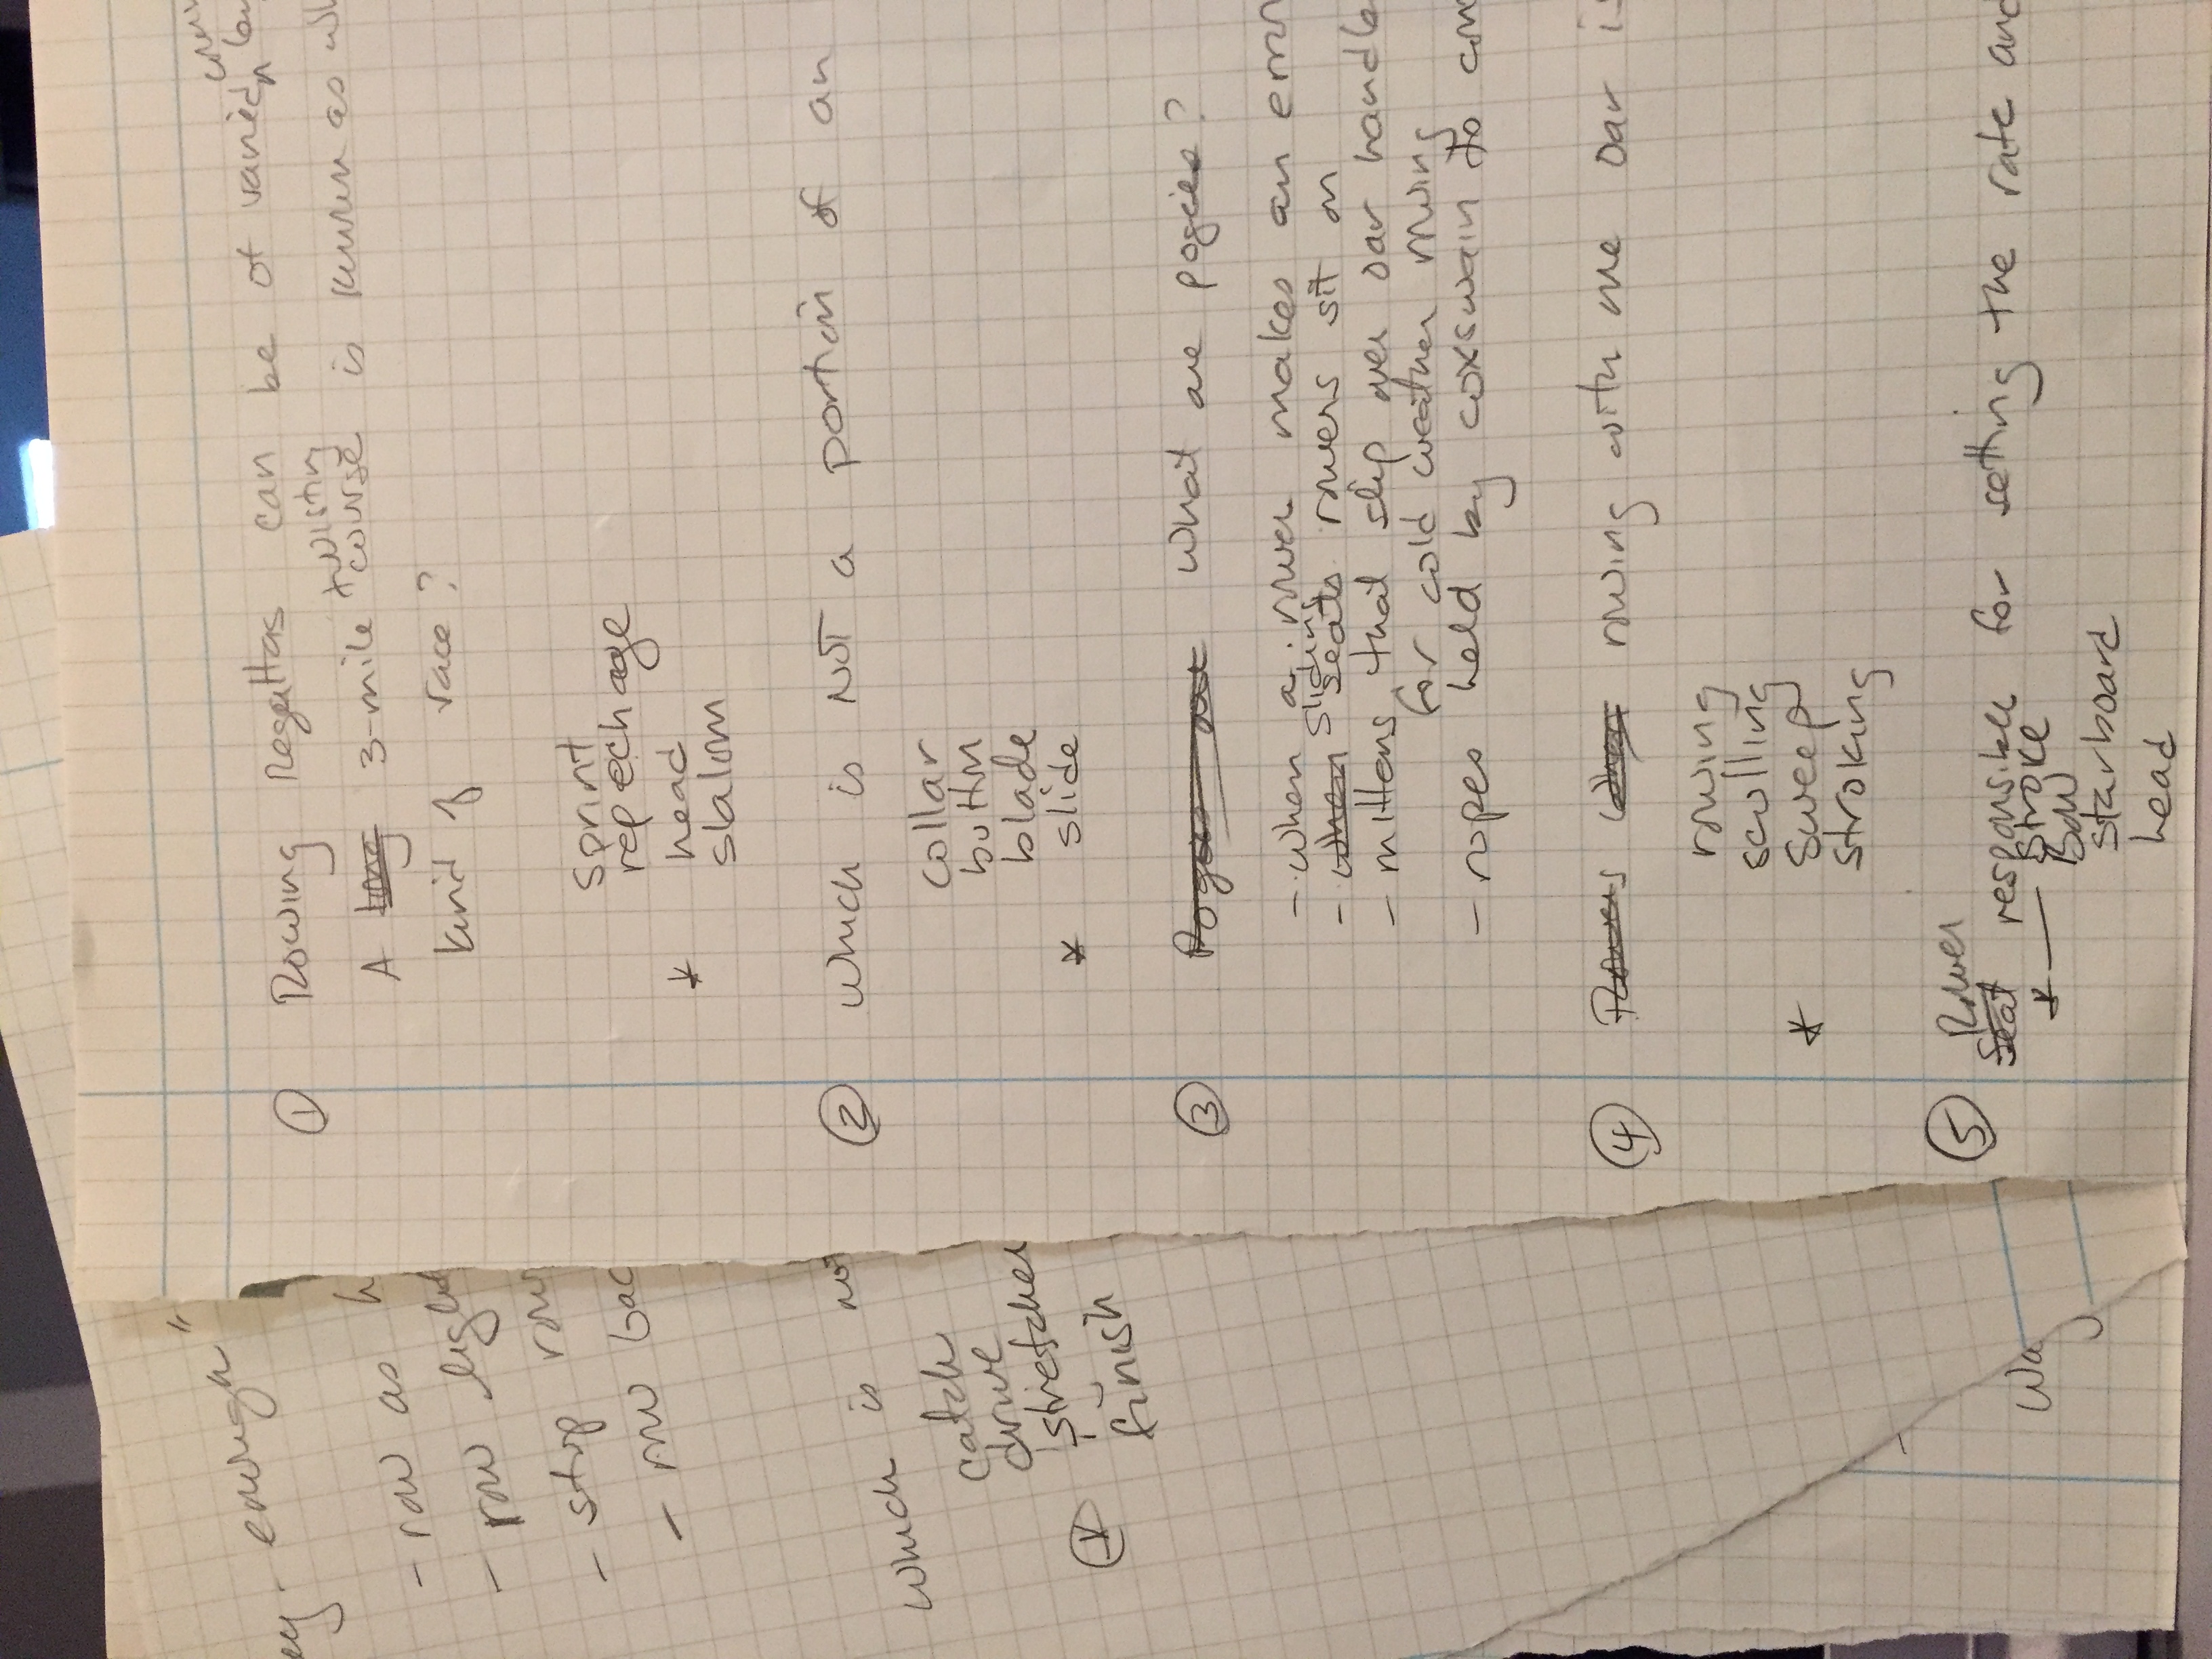 enough"
- row as h
- row light
- stop row
- row bac
which is not
catch
drive
* stretcher
finish
Wa
① Rowing Regattas can be of varied
twisting
A long 3-mile course is known as wh
kind of race?
sprint
repechage
* head
slalom
② Which is NOT a portion of an
collar
button
blade
* slide
③ Pogies are What are pogies?
- when a rower makes an error
sliding
- when seats rowers sit on
- mittens that slip over oar handle
for cold weather rowing
- ropes held by coxswain to con
④ Rowers when rowing with one oar is
rowing
sculling
* sweep
stroking
⑤ Rower
Seat responsible for setting the rate and
* — stroke
Bow
starboard
head